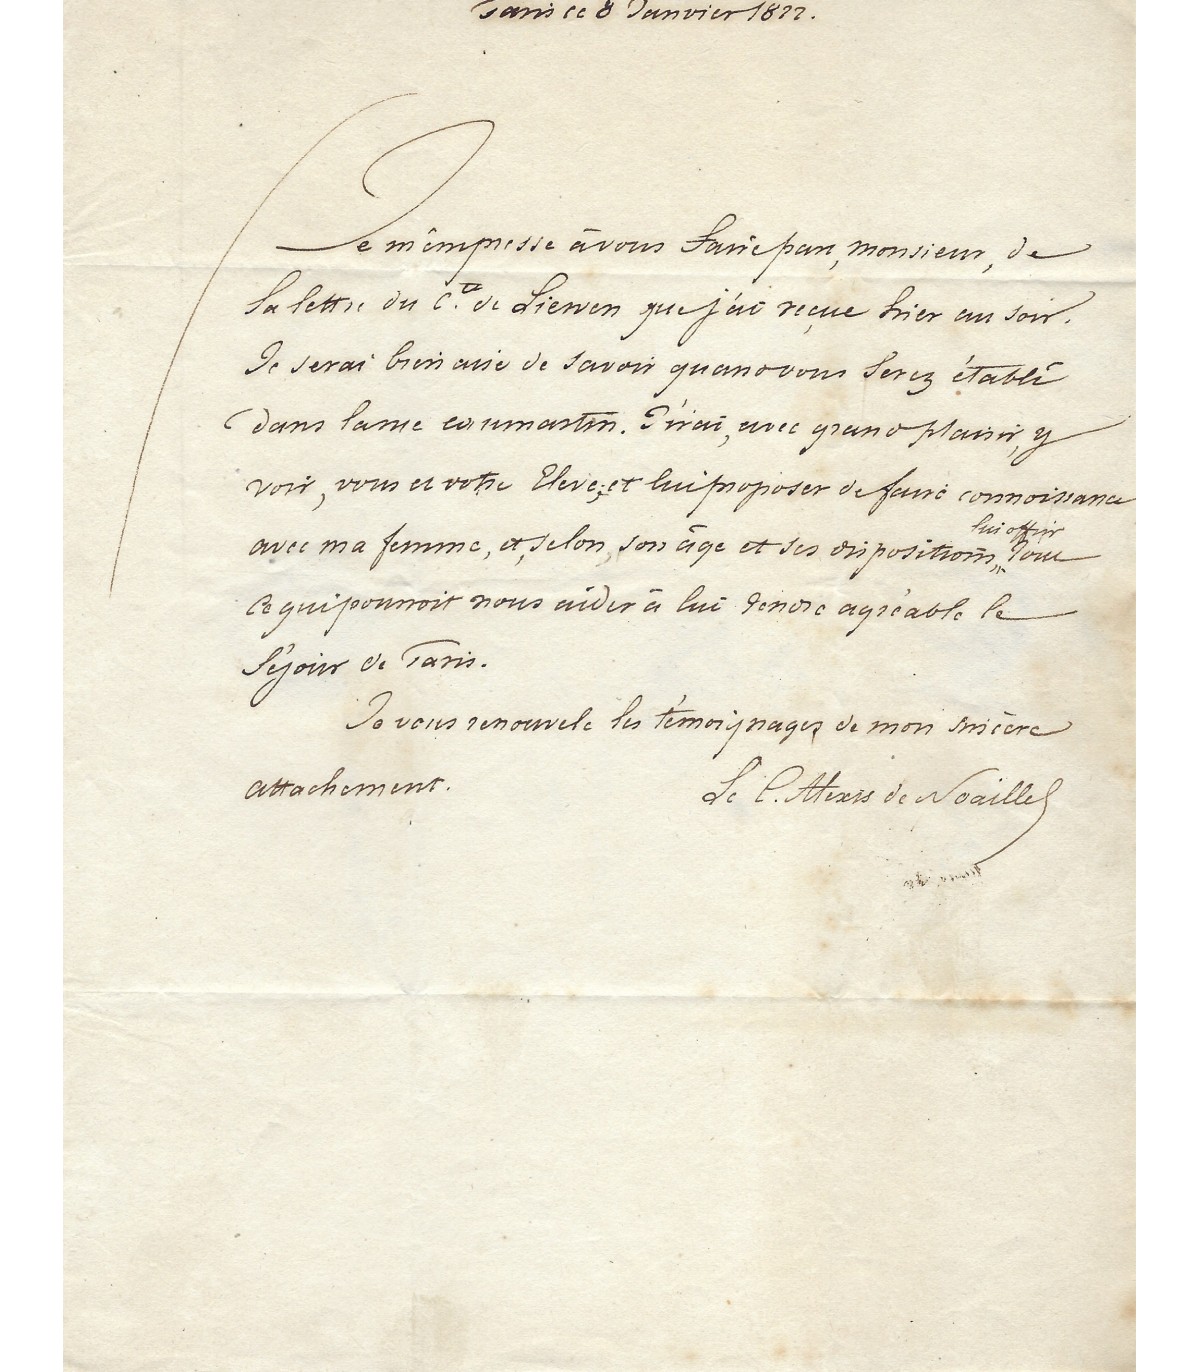 Paris ce 8 Janvier 1822.
Je m'empresse à vous faire part, monsieur, de
la lettre du Cte de Lierven que j'ai reçue hier au soir.
Je serai bien aise de savoir quand vous serez établi
dans la rue caumartin. J'irai, avec grand plaisir, y
voir, vous et votre Eleve, et lui proposer de faire connoissance
lui offrir
avec ma femme, et, selon, son âge et ses dispositions, tout
ce qui pourroit nous aider à lui rendre agréable le
séjour de Paris.
Je vous renouvele les témoignages de mon sincère
attachement.
Le C. Alexis de Noailles